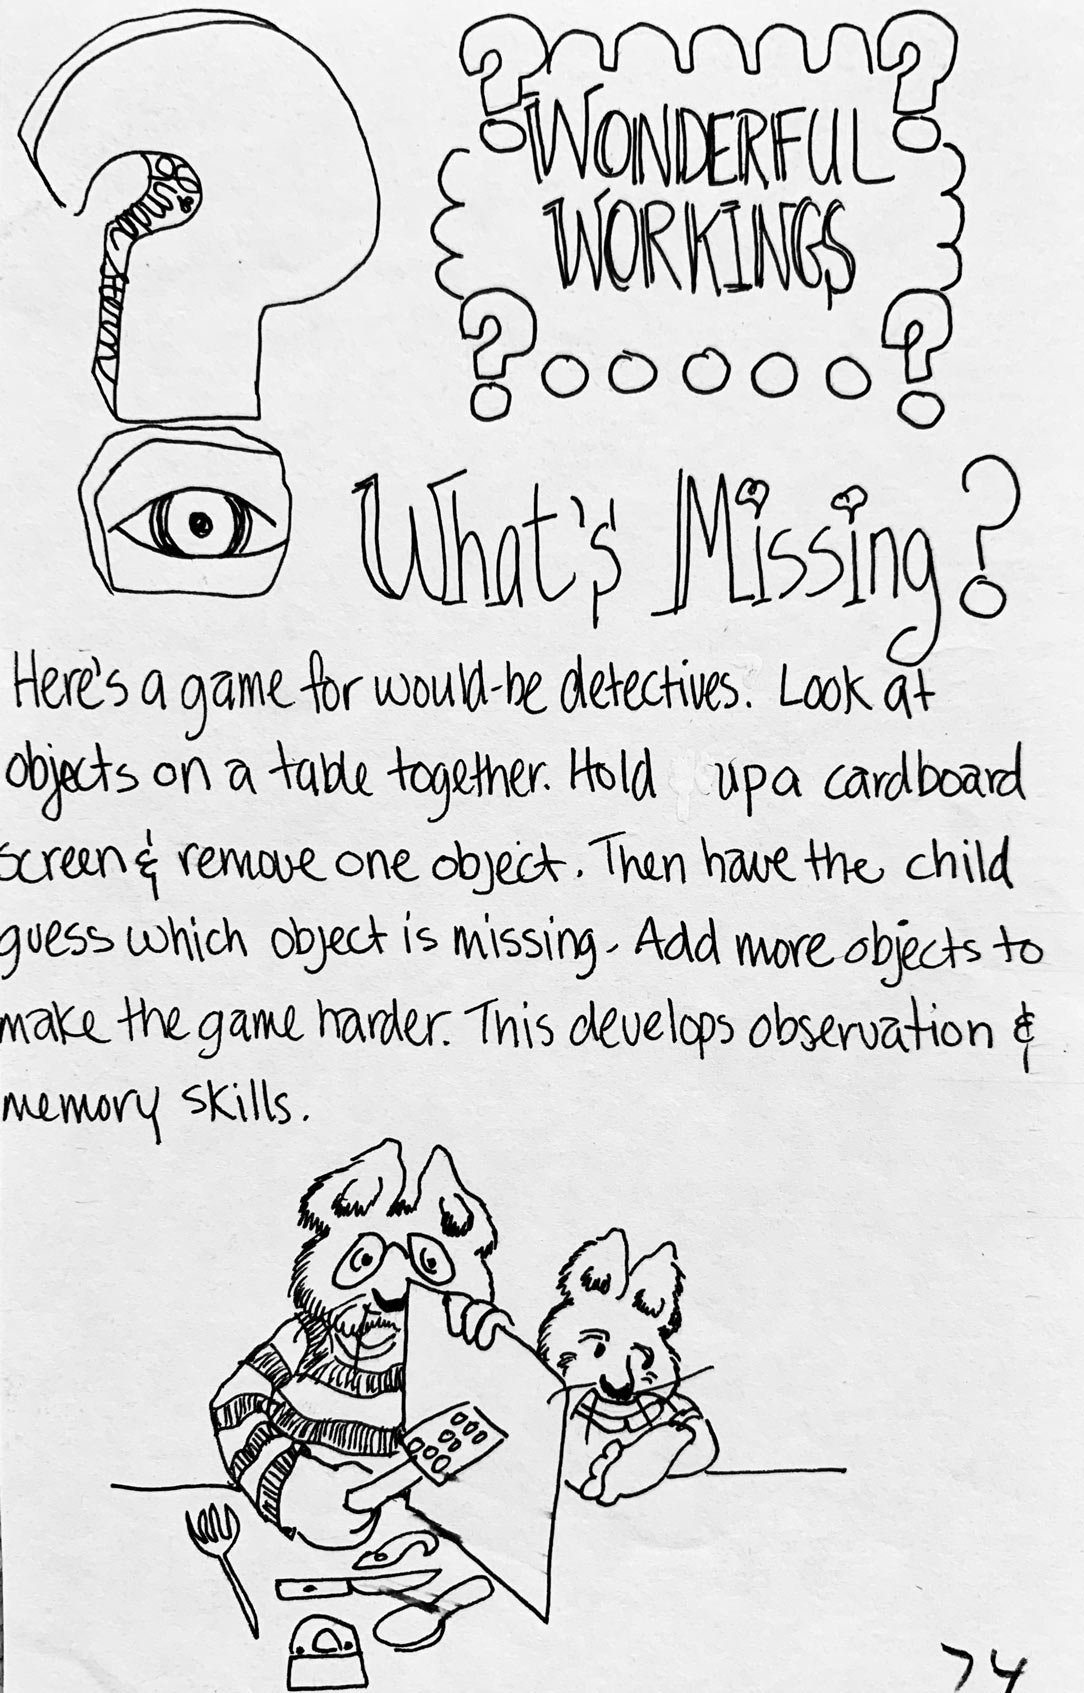 WONDERFUL
WORKINGS
What's Missing?
Here's a game for would-be detectives. Look at
objects on a table together. Hold up a cardboard
screen & remove one object. Then have the child
guess which object is missing. Add more objects to
make the game harder. This develops observation &
memory skills.
74